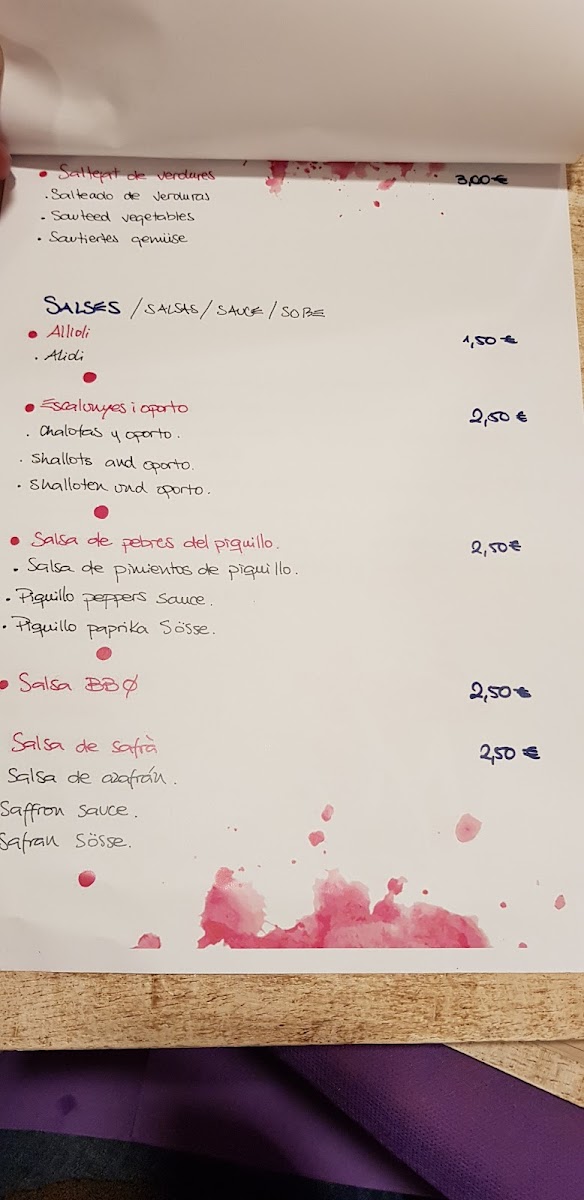 • Saltejat de verdures 3,00 €
. Salteado de verduras
. Sauteed vegetables
. Sautiertes gemüise
SALSES / SALSAS / SAUCE / SOBE
• Allioli 1,50 €
. Alioli
• Escalunyes i oporto 2,50 €
. Chalotas y oporto.
. Shallots and oporto.
. Shalloten und oporto.
• Salsa de pebres del piquillo. 2,50 €
. Salsa de pimientos de piquillo.
. Piquillo peppers sauce.
. Piquillo paprika Sösse.
• Salsa BBQ 2,50 €
Salsa de safrà 2,50 €
Salsa de azafrán.
Saffron sauce.
Safran Sösse.